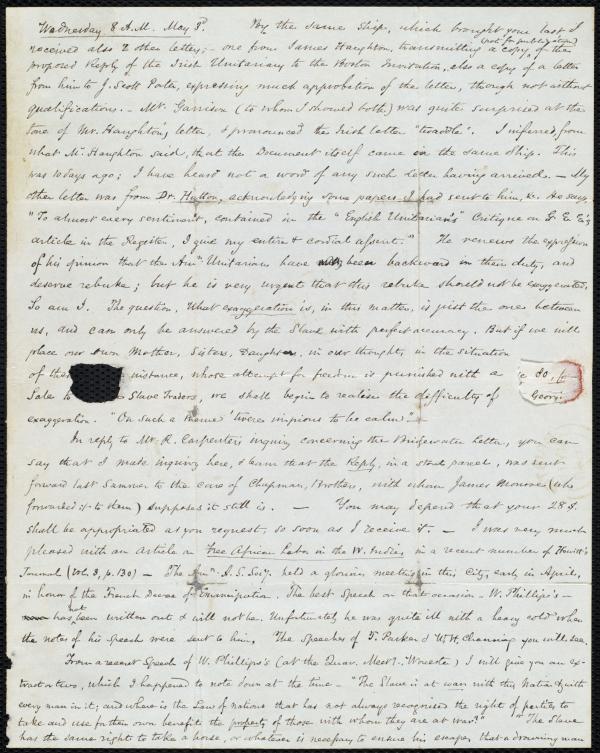 Wednesday 8 A.M. May 3d. By the same Ship, which brought your last I
received also 2 other letters; - one from James Haughton, transmitting a copy (not for publication) of the
proposed Reply of the Irish Unitarians to the Boston Invitation, also a copy of a letter
from him to J. Scott Porter, expressing much approbation of the letter, though not without
qualifications. - Mr. Garrison (to whom I showed both) was quite surprised at the
tone of Mr. Haughton's letter, & pronounced the Irish letter "twaddle". I inferred from
what Mr. Haughton said, that the Document itself came in the same Ship. This
was days ago; I have heard not a word of any such Letter having arrived. - My
other letter was from Dr. Hutton, acknowledging some papers I had sent to him, &c. He says,
"To almost every sentiment, contained in the "English Unitarian's" Critique on G. E. E's
article in the Register, I give my entire & cordial assent." He renews the expression
of his opinion that the Amn. Unitarians have been backward in their duty, and
deserve rebuke; but he is very urgent that this rebuke should not be exaggerated.
So am I. The question, What exaggeration is, in this matter, is just the one between
us, and can only be answered by the Slave with perfect accuracy. But if we will
place our own Mother, Sisters, Daughters, in our thought, in the situation
of these instance, whose attempt for freedom is punished with a
Sale to Slave Traders, we shall begin to realise the difficulty of Georgi
exaggeration. "On such a theme 'twere impious to be calm".
In reply to Mr. R. Carpenter's inquiry concerning the Bridgewater Letter, you can
say that I made inquiry here, & learn that the Reply, in a stout parcel, was sent
forward last Summer to the care of Chapman, Brothers, with whom James Munroe (who
forwarded it to them) supposes it still is. - You may depend that your 28 $.
shall be appropriated as you request, so soon as I receive it. - I was very much
pleased with an article on Free African Labor in the W. Indies, in a recent number of Howitt's
Journal (Vol. 3, p. 130) - The Amn. A. S. Socy. held a glorious meeting in this City, early in April,
in honor of the French Decree of Emancipation. The best Speech on that occasion - W. Phillips's -
has not been written out & will not be. Unfortunately he was quite ill with a heavy cold when
the notes of his Speech were sent to him. The Speeches of T. Parker & W. H. Channing you will see.
From a recent Speech of W. Phillips's (at the Quar. Meetg. Worcester) I will give you an ex-
tract or two, which I happened to note down at the time - "The Slave is at war with this Nation & with
every man in it; and where is the Law of nations that has not always recognised the right of parties to
take and use for their own benefit the property of those with whom they are at war?" "The Slave
has the same right to take a horse, or whatever is necessary to ensure his escape, that a drowning man